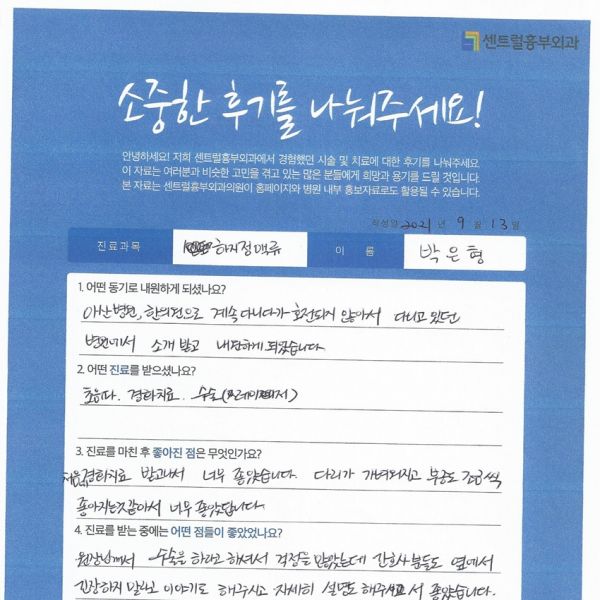 센트럴흉부외과
소중한 후기를 나눠주세요!
안녕하세요! 저희 센트럴흉부외과에서 경험했던 시술 및 치료에 대한 후기를 나눠주세요.
이 자료는 여러분과 비슷한 고민을 겪고 있는 많은 분들에게 희망과 용기를 드릴 것입니다.
본 자료는 센트럴흉부외과의원이 홈페이지와 병원 내부 홍보자료로도 활용될 수 있습니다.
작성일 2021 년 9 월 13 일
진료과목 하지정맥류 이 름 박은형
1. 어떤 동기로 내원하게 되셨나요?
아산병원, 한의원으로 계속 다니다가 호전되지 않아서 다니고 있던
병원에서 소개 받고 내원하게 되었습니다.
2. 어떤 진료를 받으셨나요?
초음파. 경화치료. 수술
3. 진료를 마친 후 좋아진 점은 무엇인가요?
처음, 경화치료 받고나서 너무 좋았습니다. 다리가 가벼워지고 부종도 조금씩
좋아지는것같아서 너무 좋았답니다.
4. 진료를 받는 중에는 어떤 점들이 좋았었나요?
원장님께서 수술을 하라고 하셔서 걱정을 많았는데 간호사분들도 옆에서
긴장하지 말라고 이야기도 해주시고 자세히 설명도 해주시고 서 좋았습니다.